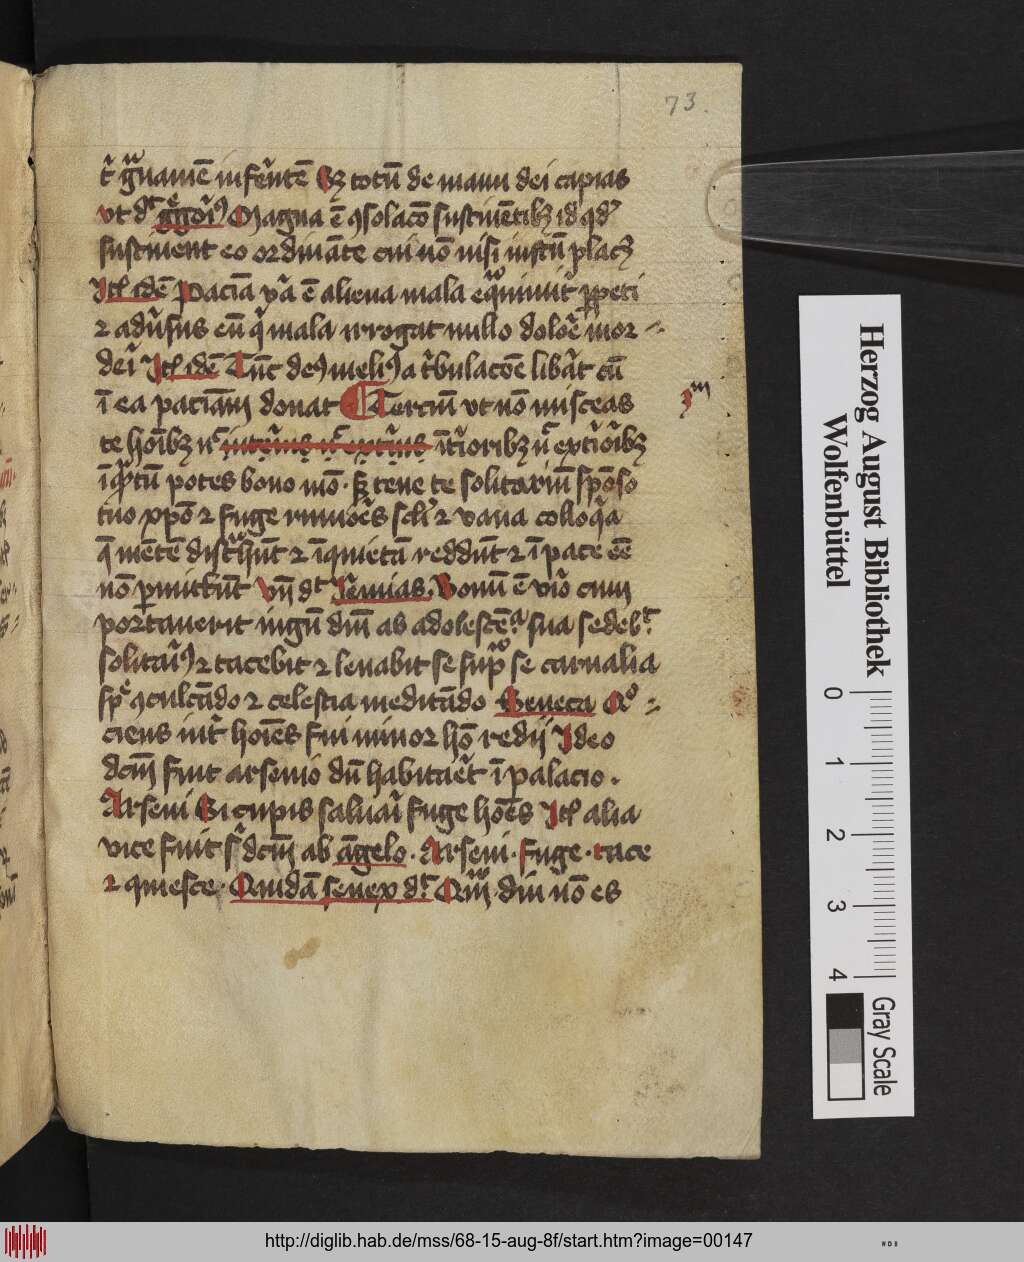 73.
t̄ g̃uamē infer̄tē Sz totū de manu dei capias
vt dt g̃goriꝰ Magna ē ꝯsolacō sustinētibz id qd
sustinent eo ordināte cui nō nisi iustū placz
Itē idē Paciā va ē aliena mala eq̄nimit ꝑpeti
ꝛ adūsus eū q̄ mala irrogat nullo dolorē mor⸗
deri Itē idē Tūc deꝰ meliꝰ a tbulacōe libat cū
ī ea paciām donat Terciū vt nō misceas
3m
te hoībz nc interius nc exterius īterioribz nc exterioribz
īqntū potes bono mō · Sz tene te solitariū spōso
tuo xpō ꝛ fuge rumōes scli ꝛ vana colloq̄a
q̄ mētē disthūt ꝛ īquietā reddūt ꝛ ī pace eē
nō pmittūt Vn̄ dt Jemias. Bonū ē viro cum
portauerit iugū dm̄ ab adolescēa sua sedebt
solitariꝰ ꝛ tacebit ꝛ leuabit se supo se carnalia
spe ꝯculcādo ꝛ celestia meditādo Seneca Qo⸗
ciens int hoīes fui minor hō redij Ideo
dcm̄ fuit arsenio dū habitaret ī palacio .
Arseni Si cupis saluari fuge hoēs Itē alia
vice fuit s dcm̄ ab āgelo . Arseni . fuge . tace
ꝛ quiesce . Quidā senex dt Qm̄ . diu nō es
Herzog August Bibliothek
Wolfenbüttel
0 1 2 3 4
Gray Scale
http://diglib.hab.de/mss/68-15-aug-8f/start.htm?image=00147